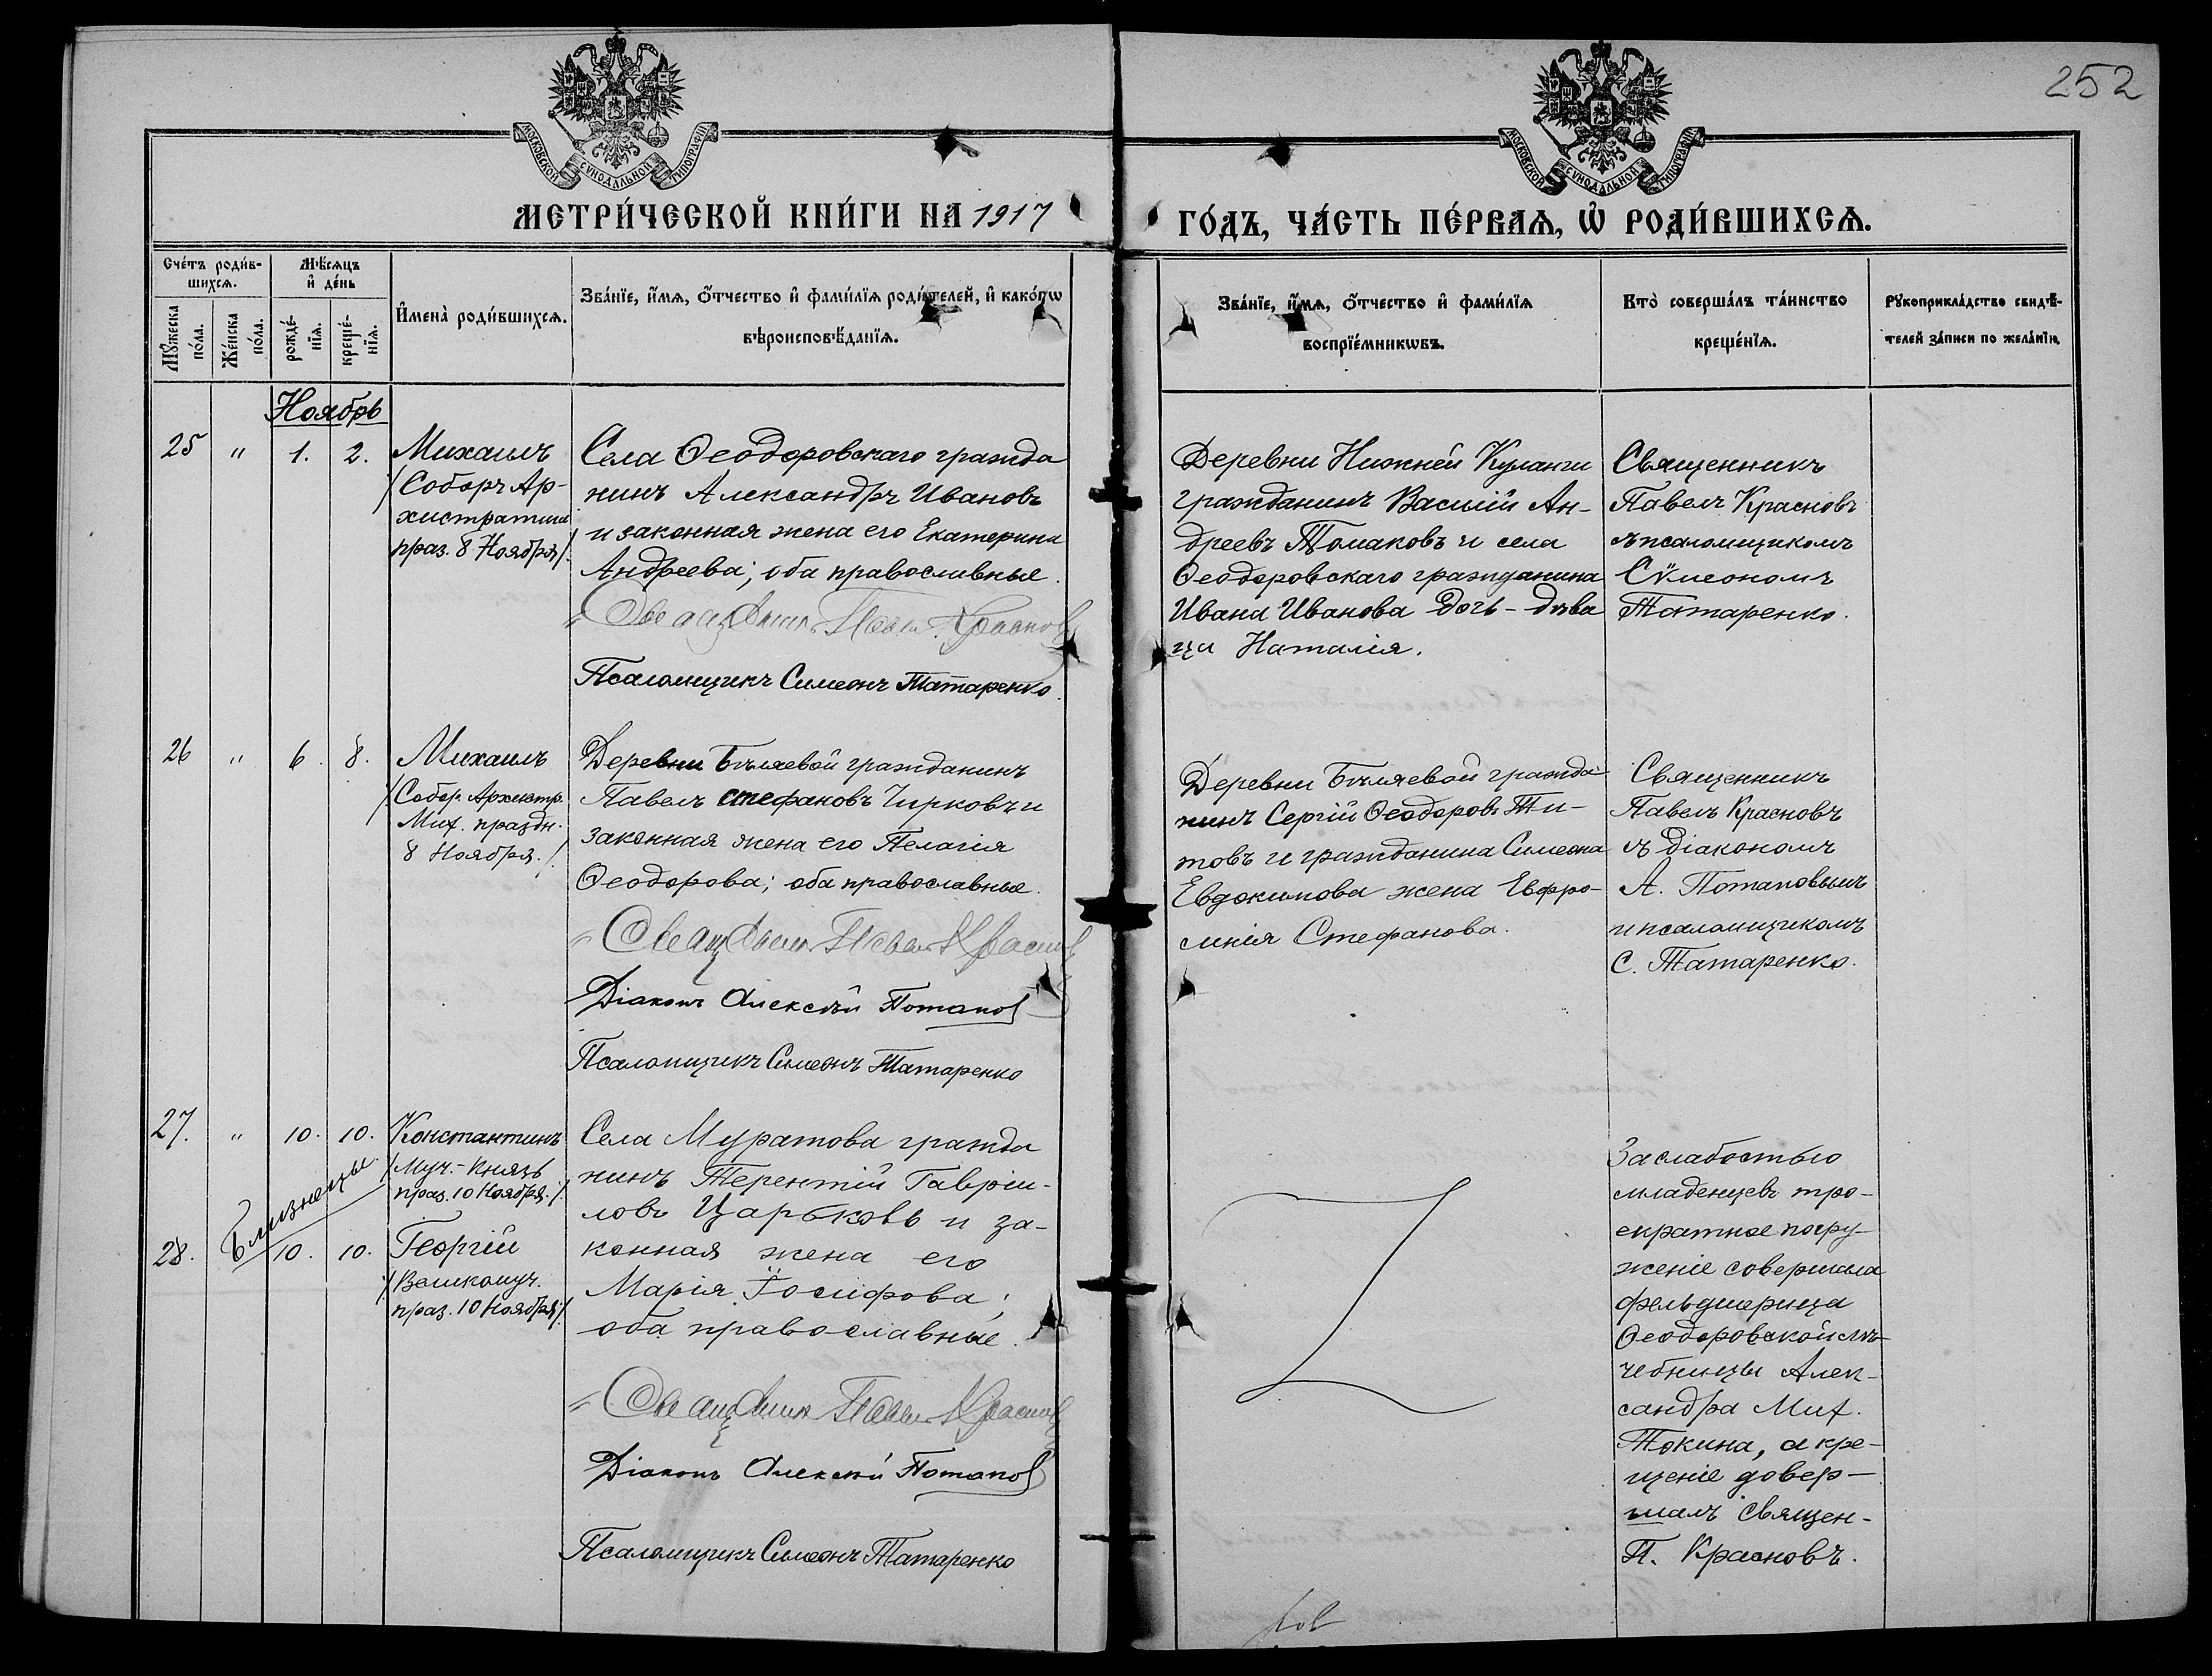 252
МОСКОВСКОЙ СѴНОДАЛЬНОЙ ТИПОГРАФІИ
МОСКОВСКОЙ СѴНОДАЛЬНОЙ ТИПОГРАФІИ
МЕТРИ́ЧЕСКОЙ КНИ́ГИ НА 1917 ГО́ДЪ, ЧА́СТЬ ПЕ́РВАѦ, Ѡ҆ РОДИ́ВШИХСѦ.
Сче́тъ роди́в-
шихсѧ.
Мѣ́сѧцъ
и҆ де́нь
Мꙋ́жеска
по́ла.
Же́нска
по́ла.
рожде́-
нїѧ.
креще́-
нїѧ.
И҆мена̀ роди́вшихсѧ.
Зва́нїе, и҆́мѧ, ѻ҆́тчество и҆ фами́лїѧ роди́телей, и҆ како́гѡ
вѣроисповѣ́данїѧ.
Зва́нїе, и҆́мѧ, ѻ҆́тчество и҆ фами́лїѧ
воспрїе́мникѡвъ.
Кто̀ соверша́лъ та́инство
креще́нїѧ.
Рꙋкоприкла́дство свидѣ́-
телей за́писи по жела́нїю.
Ноябрь
25 " 1. 2.
Михаилъ
/Соборъ Ар-
хистратига
праз. 8 Ноября/.
Села Ѳеодоровскаго гражда
нинъ Александръ Ивановъ
и законная жена его Екатерина
Андреева; оба православные.
Священникъ Павелъ Красновъ
Псаломщикъ Симеонъ Татаренко.
Деревни Нижней Куланги
гражданинъ Василій Ан-
дреевъ Томаковъ и села
Ѳеодоровскаго гражданина
Ивана Иванова дочь - дѣви
ца Наталія.
Священникъ
Павелъ Красновъ
съ псаломщикомъ
Сѵмеономъ
Татаренко.
26 " 6. 8.
Михаилъ
/Собор. Архистр.
Мих. праздн.
8 Ноября./.
Деревни Бѣляевой гражданинъ
Павелъ Стефановъ Чирковъ и
законная жена его Пелагія
Ѳеодорова; оба православные.
Священникъ Павелъ Красновъ
Діаконъ Алексѣй Потапов
Псаломщикъ Симеонъ Татаренко
Деревни Бѣляевой гражда
нинъ Сергій Ѳеодоров. Ти-
товъ и гражданина Симеона
Евдокимова жена Евфро-
синія Стефанова.
Священникъ
Павелъ Красновъ
съ діакономъ
А. Потаповымъ
и псаломщикомъ
С. Татаренко.
27. " 10. 10.
Константинъ
/Муч. - Князь
праз. 10 Ноября./.
Близнецы
28. 10. 10.
Георгій
/Великомуч.
праз. 10 Ноября/.
Села Муратова гражда
нинъ Терентій Гавріи-
ловъ Царьковъ и за-
конная жена его
Марія Іосифова;
оба православные.
Священник Павелъ Красновъ
Діаконъ Алексѣй Потапов
Псаломщикъ Симеонъ Татаренко
За слабостью
младенцевъ тро-
екратное погру-
женіе совершала
фельдшерица
Ѳеодоровской лѣ-
чебницы Алек-
сандра Мих.
Токина, а кре-
щеніе довер-
шалъ Священ-
П. Красновъ.